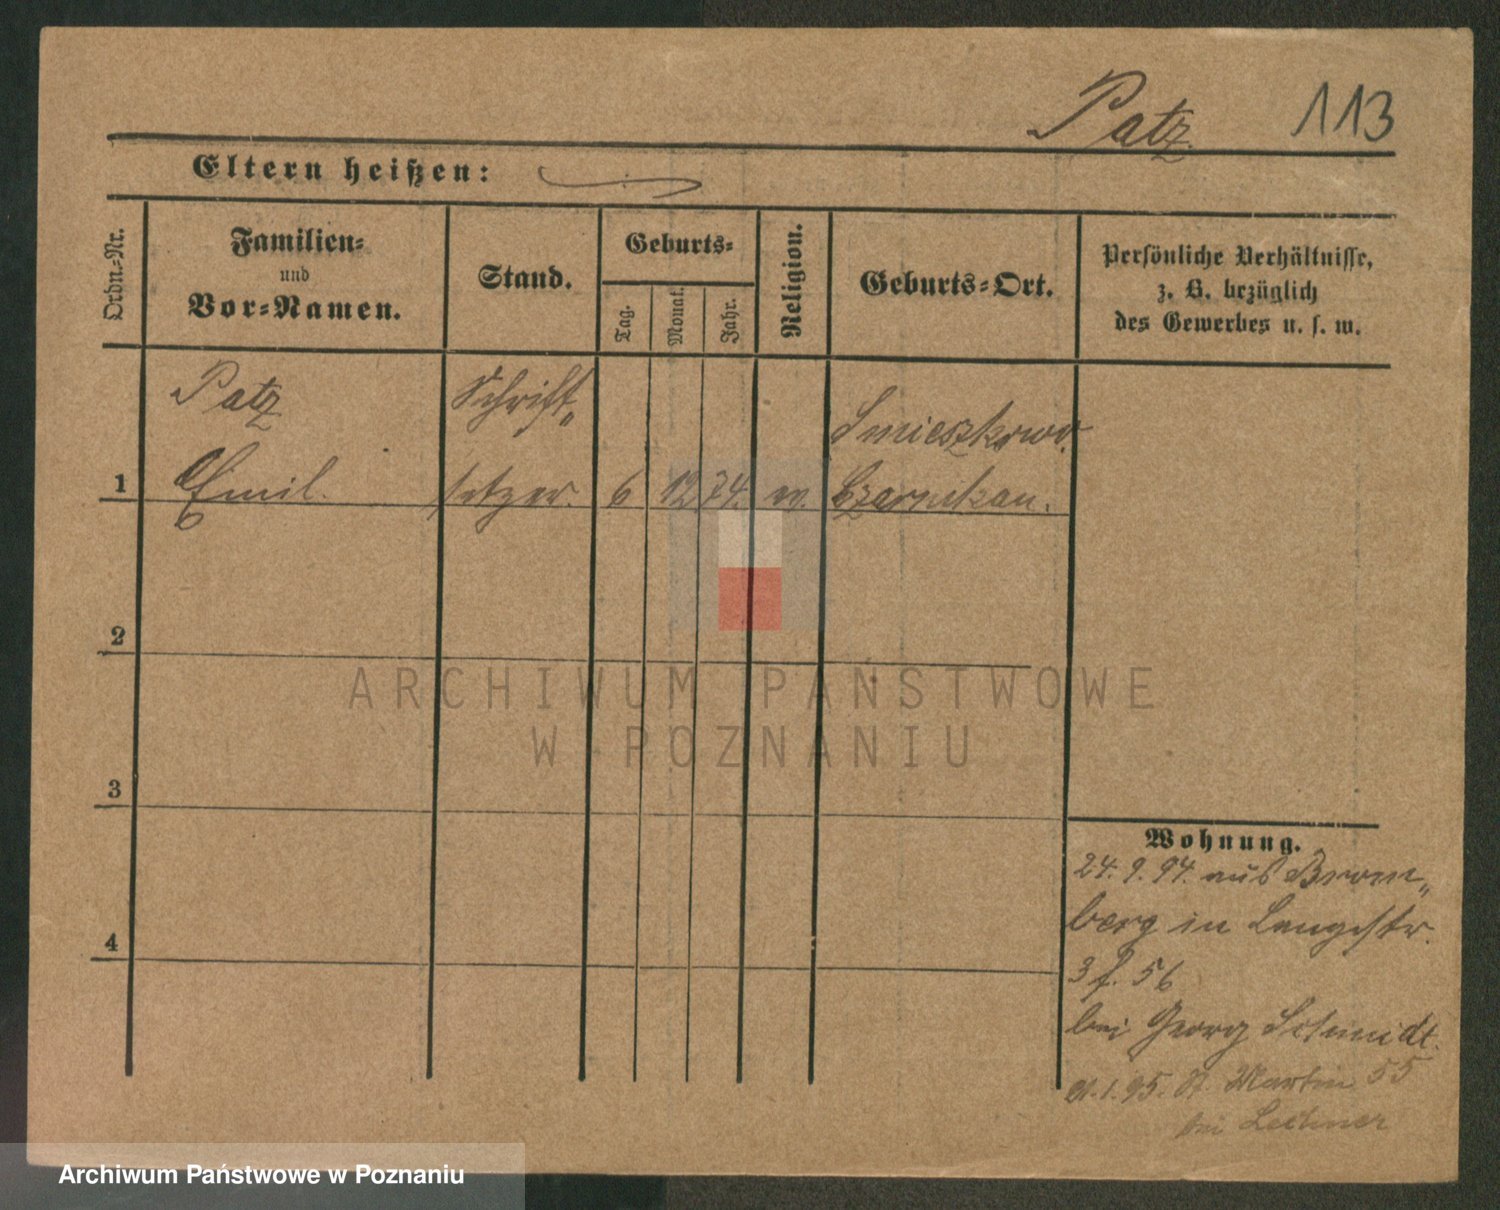 Patz. 113
Eltern heißen:
Ordn.-Nr.
Familien-
und
Vor-Namen.
Stand.
Geburts-
Tag.
Monat.
Jahr.
Religion.
Geburts-Ort.
Persönliche Verhältnisse,
z. B. bezüglich
des Gewerbes u. s. w.
Patz Schrift„
Smieszkowo.
1 Emil. setzer. 6 12 74. Czarnikau.
2
ARCHIWUM PAŃSTWOWE
W POZNANIU
3
Wohnung.
24. 9. 94. aus Brom„
berg in Langestr.
3 56
4
bei Georg Schmidt.
1. 95. St. Martin 55
bei Lechner
Archiwum Państwowe w Poznaniu